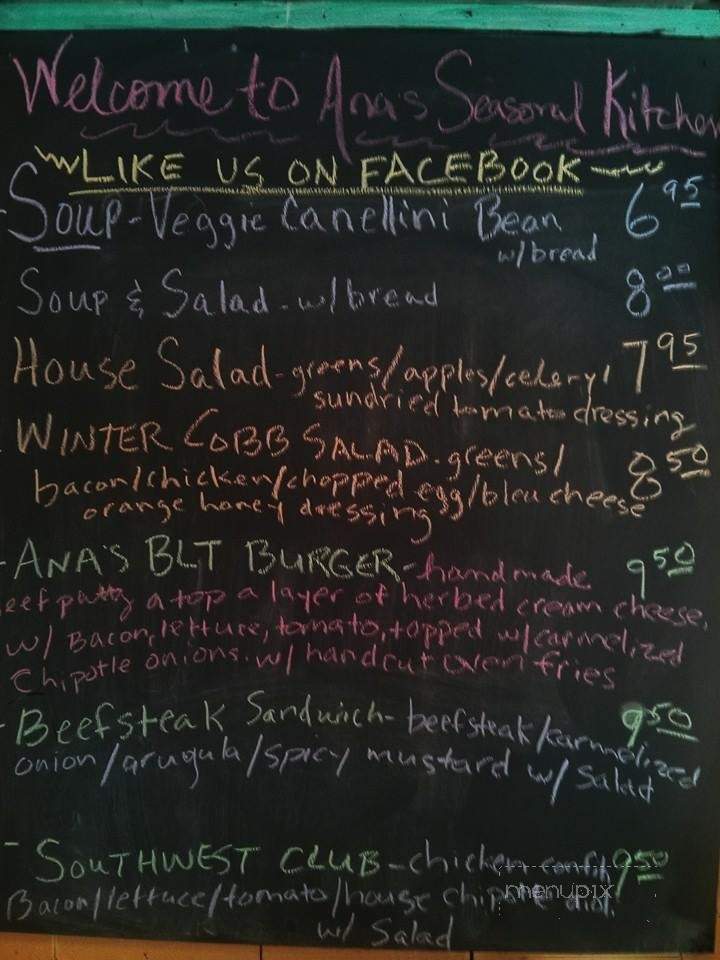 Welcome to Ana's Seasonal Kitchen
LIKE US ON FACEBOOK
Soup - Veggie Canellini Bean 6 95
w/bread
Soup & Salad - w/bread 8 00
House Salad - greens/apples/celery/ 7 95
sundried tomato dressing
WINTER COBB SALAD - greens/ 8 50
bacon/chicken/chopped egg/bleu cheese
orange honey dressing
- ANA'S BLT BURGER - handmade 9 50
eef patty a top a layer of herbed cream cheese,
w/ Bacon, lettuce, tomato, topped w/carmelized
Chipotle onions. w/ handcut oven fries
- Beefsteak Sandwich - beefsteak/carmelized 9 50
onion/arugula/spicy mustard w/ Salad
- SOUTHWEST CLUB - chicken confit/ 9 50
Bacon/lettuce/tomato/house chipotle
w/ Salad
menupix